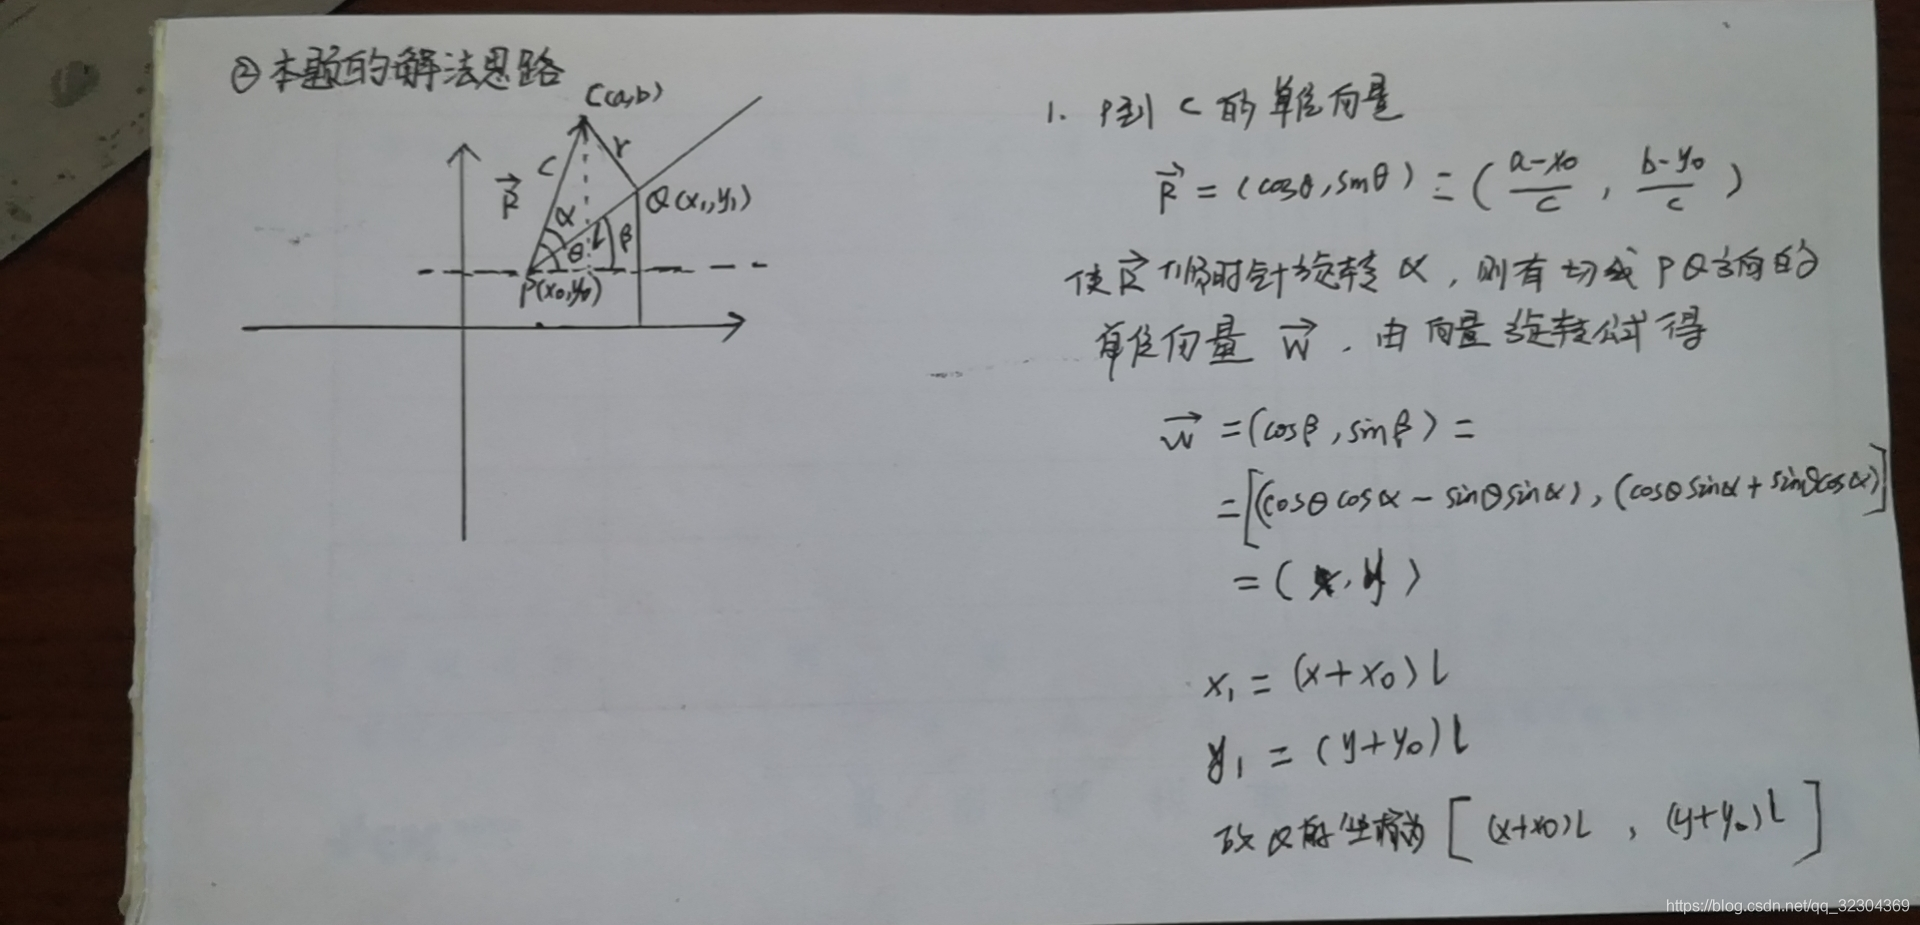 ②本题的解法思路
C(a,b)
r
c
R
Q(x₁,y₁)
α
θ
L
β
P(x₀,y₀)
1. P到 C 的单位向量
R = (cosθ, sinθ) = ( (a-x₀)/c , (b-y₀)/c )
使 R 顺时针旋转 α, 则有切线 PQ方向的
单位向量 W . 由 向量 旋转公式 得
W = (cosβ, sinβ) =
= [(cosθ cosα - sinθ sinα), (cosθ sinα + sinθ cosα)]
= ( x, y )
x₁ = (x + x₀) L
y₁ = (y + y₀) L
故 Q的坐标为 [ (x+x₀)L , (y+y₀)L ]
https://blog.csdn.net/qq_32304369